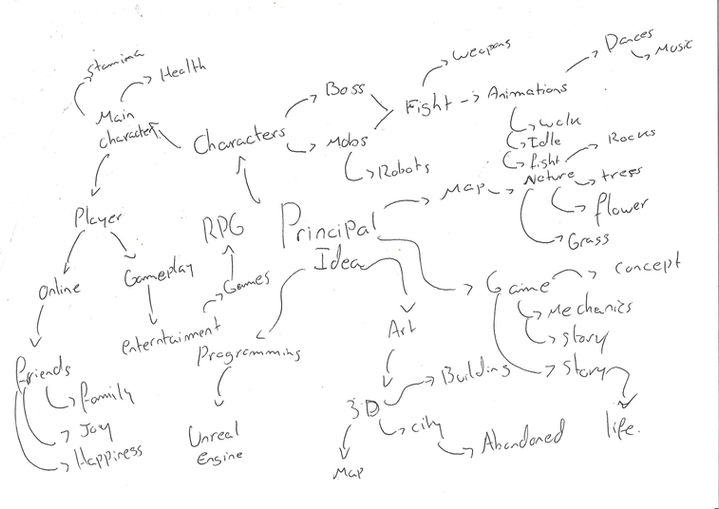 Stamina
Health
Main
character
Characters
Boss
Mobs
Robots
Fight
Weapons
Animations
Dances
Music
Walk
Idle
fight
Map
Nature
Rocks
trees
flower
Grass
Player
RPG
Principal
Idea
Online
Gameplay
Games
Enterntainment
Programming
Unreal
Engine
Friends
family
Joy
Happiness
Art
3D
Building
City
Abandoned
Map
Game
concept
Mechanics
Story
Story
life.